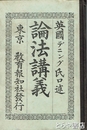 英國デニング氏口述
論法講義
東京 教育報知社發行